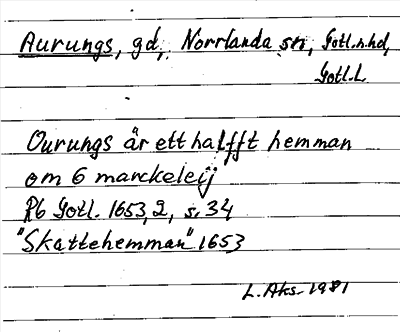 Aurungs, gd, Norrlanda sn, Gotl.n.hd,
Gotl.L.
Ourungs är ett halfft hemman
om 6 marckeleij
Rb Gotl. 1653,2, s. 34
"Skattehemman" 1653
L. Aks- 1981